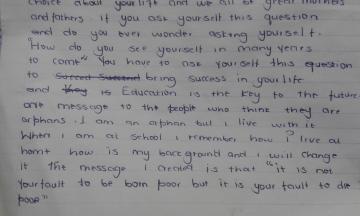 choice about your lift and we all be great mothers
and fathers if you ask yourself this question
and do you ever wonder asking yourself.
"How do you see yourself in many years
to come" You have to ask yourself this question
to bring success in your life
and is Education is the key to the future
one message to the people who think they are
orphans. I am an orphan but i live with it
When i am at school i remember how i live at
home how is my background and i will change
it the message i created is that "it is not
your fault to be born poor but it is your fault to die
poor"